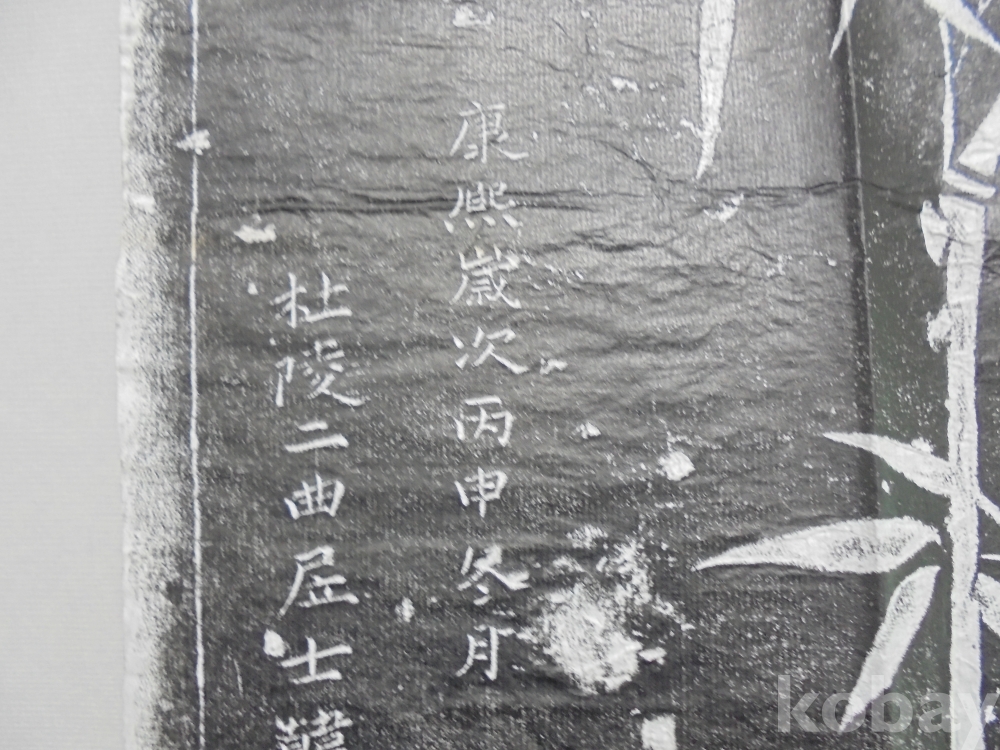 康熙歲次丙申冬月
杜陵二曲居士韓
kobay